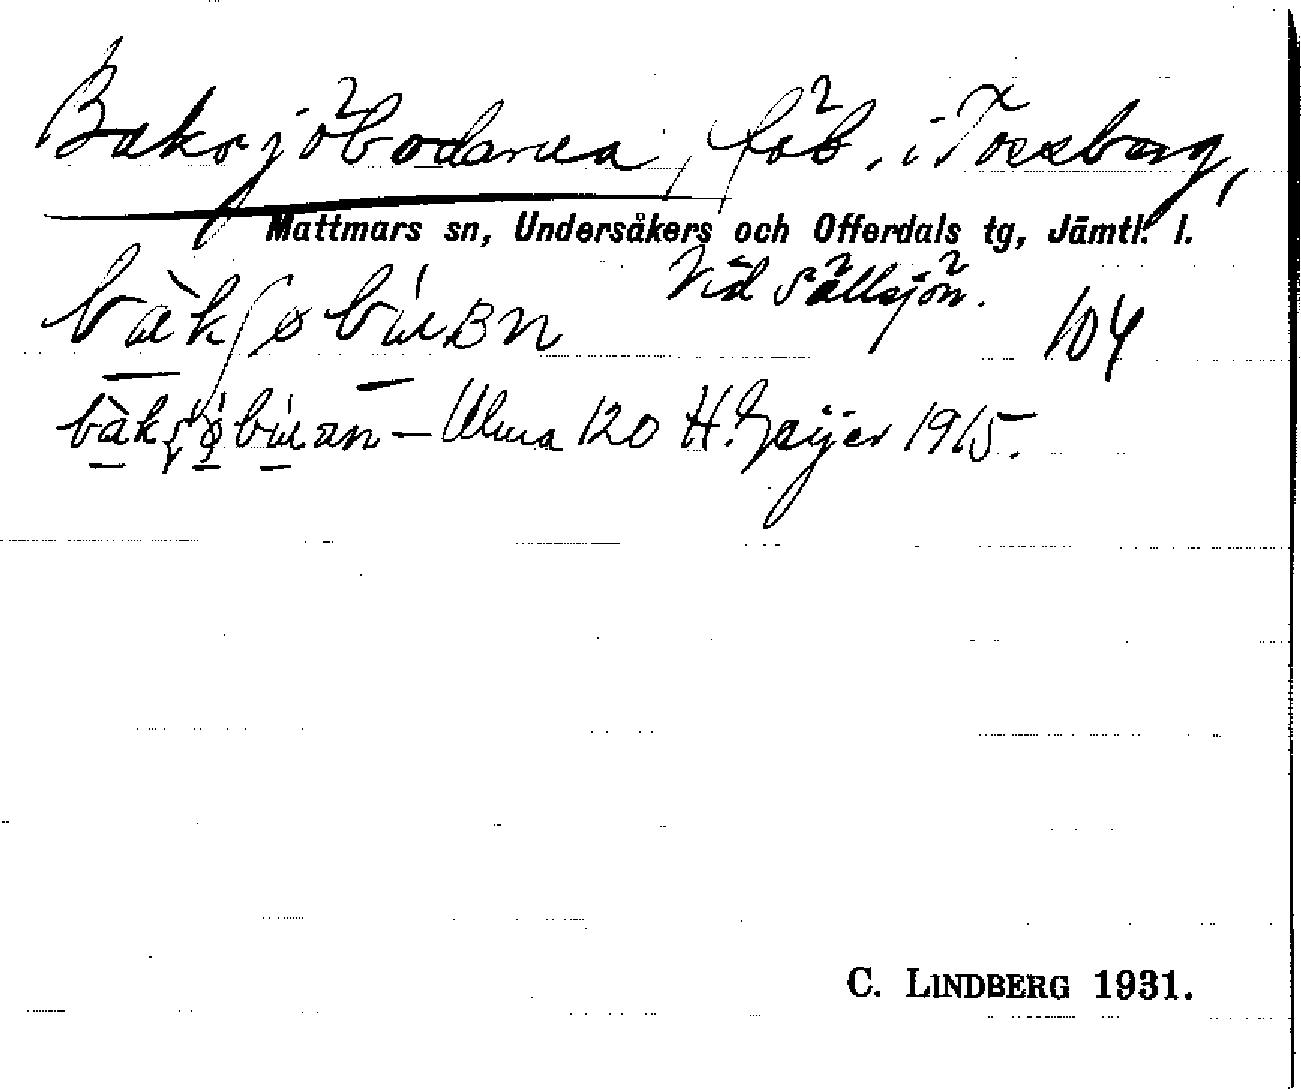 Baksjöbodarna, fäb. i Tossberg,
Mattmars sn, Undersåkers och Offerdals tg, Jämtl. l.
Vid Sällsjön.
104
Ulma 120 H. Geijer 1915.
C. LINDBERG 1931.